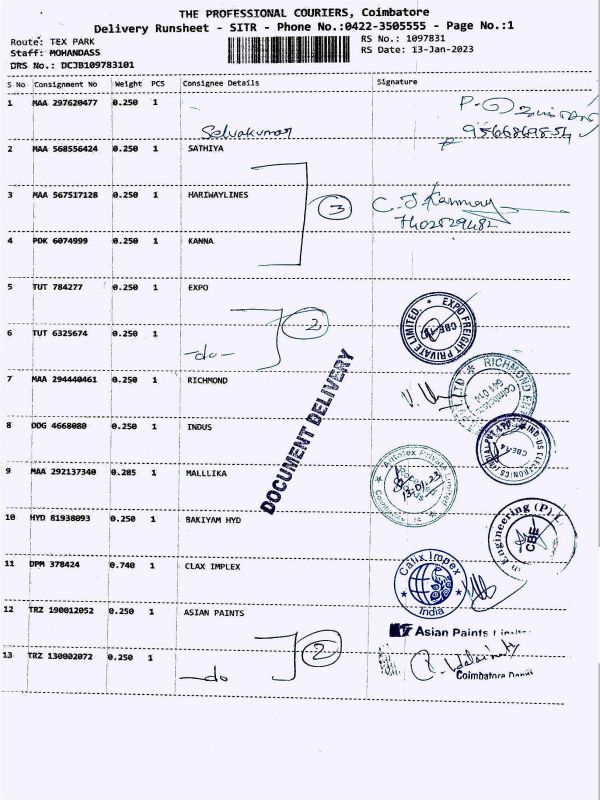 THE PROFESSIONAL COURIERS, Coimbatore
Delivery Runsheet - SITR - Phone No.:0422-3505555 - Page No.:1
Route: TEX PARK
RS No.: 1097831
Staff: MOHANDASS
RS Date: 13-Jan-2023
DRS No.: DCJB109783101
S No Consignment No Weight PCS Consignee Details Signature
1 MAA 297620477 0.250 1
Selvakumar
2 MAA 568556424 0.250 1 SATHIYA
3 MAA 567517128 0.250 1 HARIWAYLINES
3
4 PDK 6074999 0.250 1 KANNA
5 TUT 784277 0.250 1 EXPO
2
EXPO FREIGHT PRIVATE LIMITED
6 TUT 6325674 0.250 1
-do-
7 MAA 294440461 0.250 1 RICHMOND
RICHMOND
8 DDG 4668080 0.250 1 INDUS
DOCUMENT DELIVERY
9 MAA 292137340 0.285 1 MALLLIKA
Autotex Private Limited
13-01-23
10 HYD 81938093 0.250 1 BAKIYAM HYD
Engineering (P)
CBE
11 DPM 378424 0.740 1 CLAX IMPLEX
Calix Impex
India
12 TRZ 190012052 0.250 1 ASIAN PAINTS
Asian Paints
13 TRZ 130002072 0.250 1
2
-do
Coimbatore